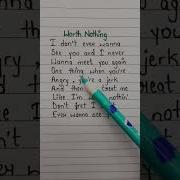 Worth Nothing
I don't even wanna
See you and I never
Wanna meet you again
One thing when you're
Angry, you're a jerk
And then treat me
Like I'm nothin'
Don't fret I
Ever wanna see